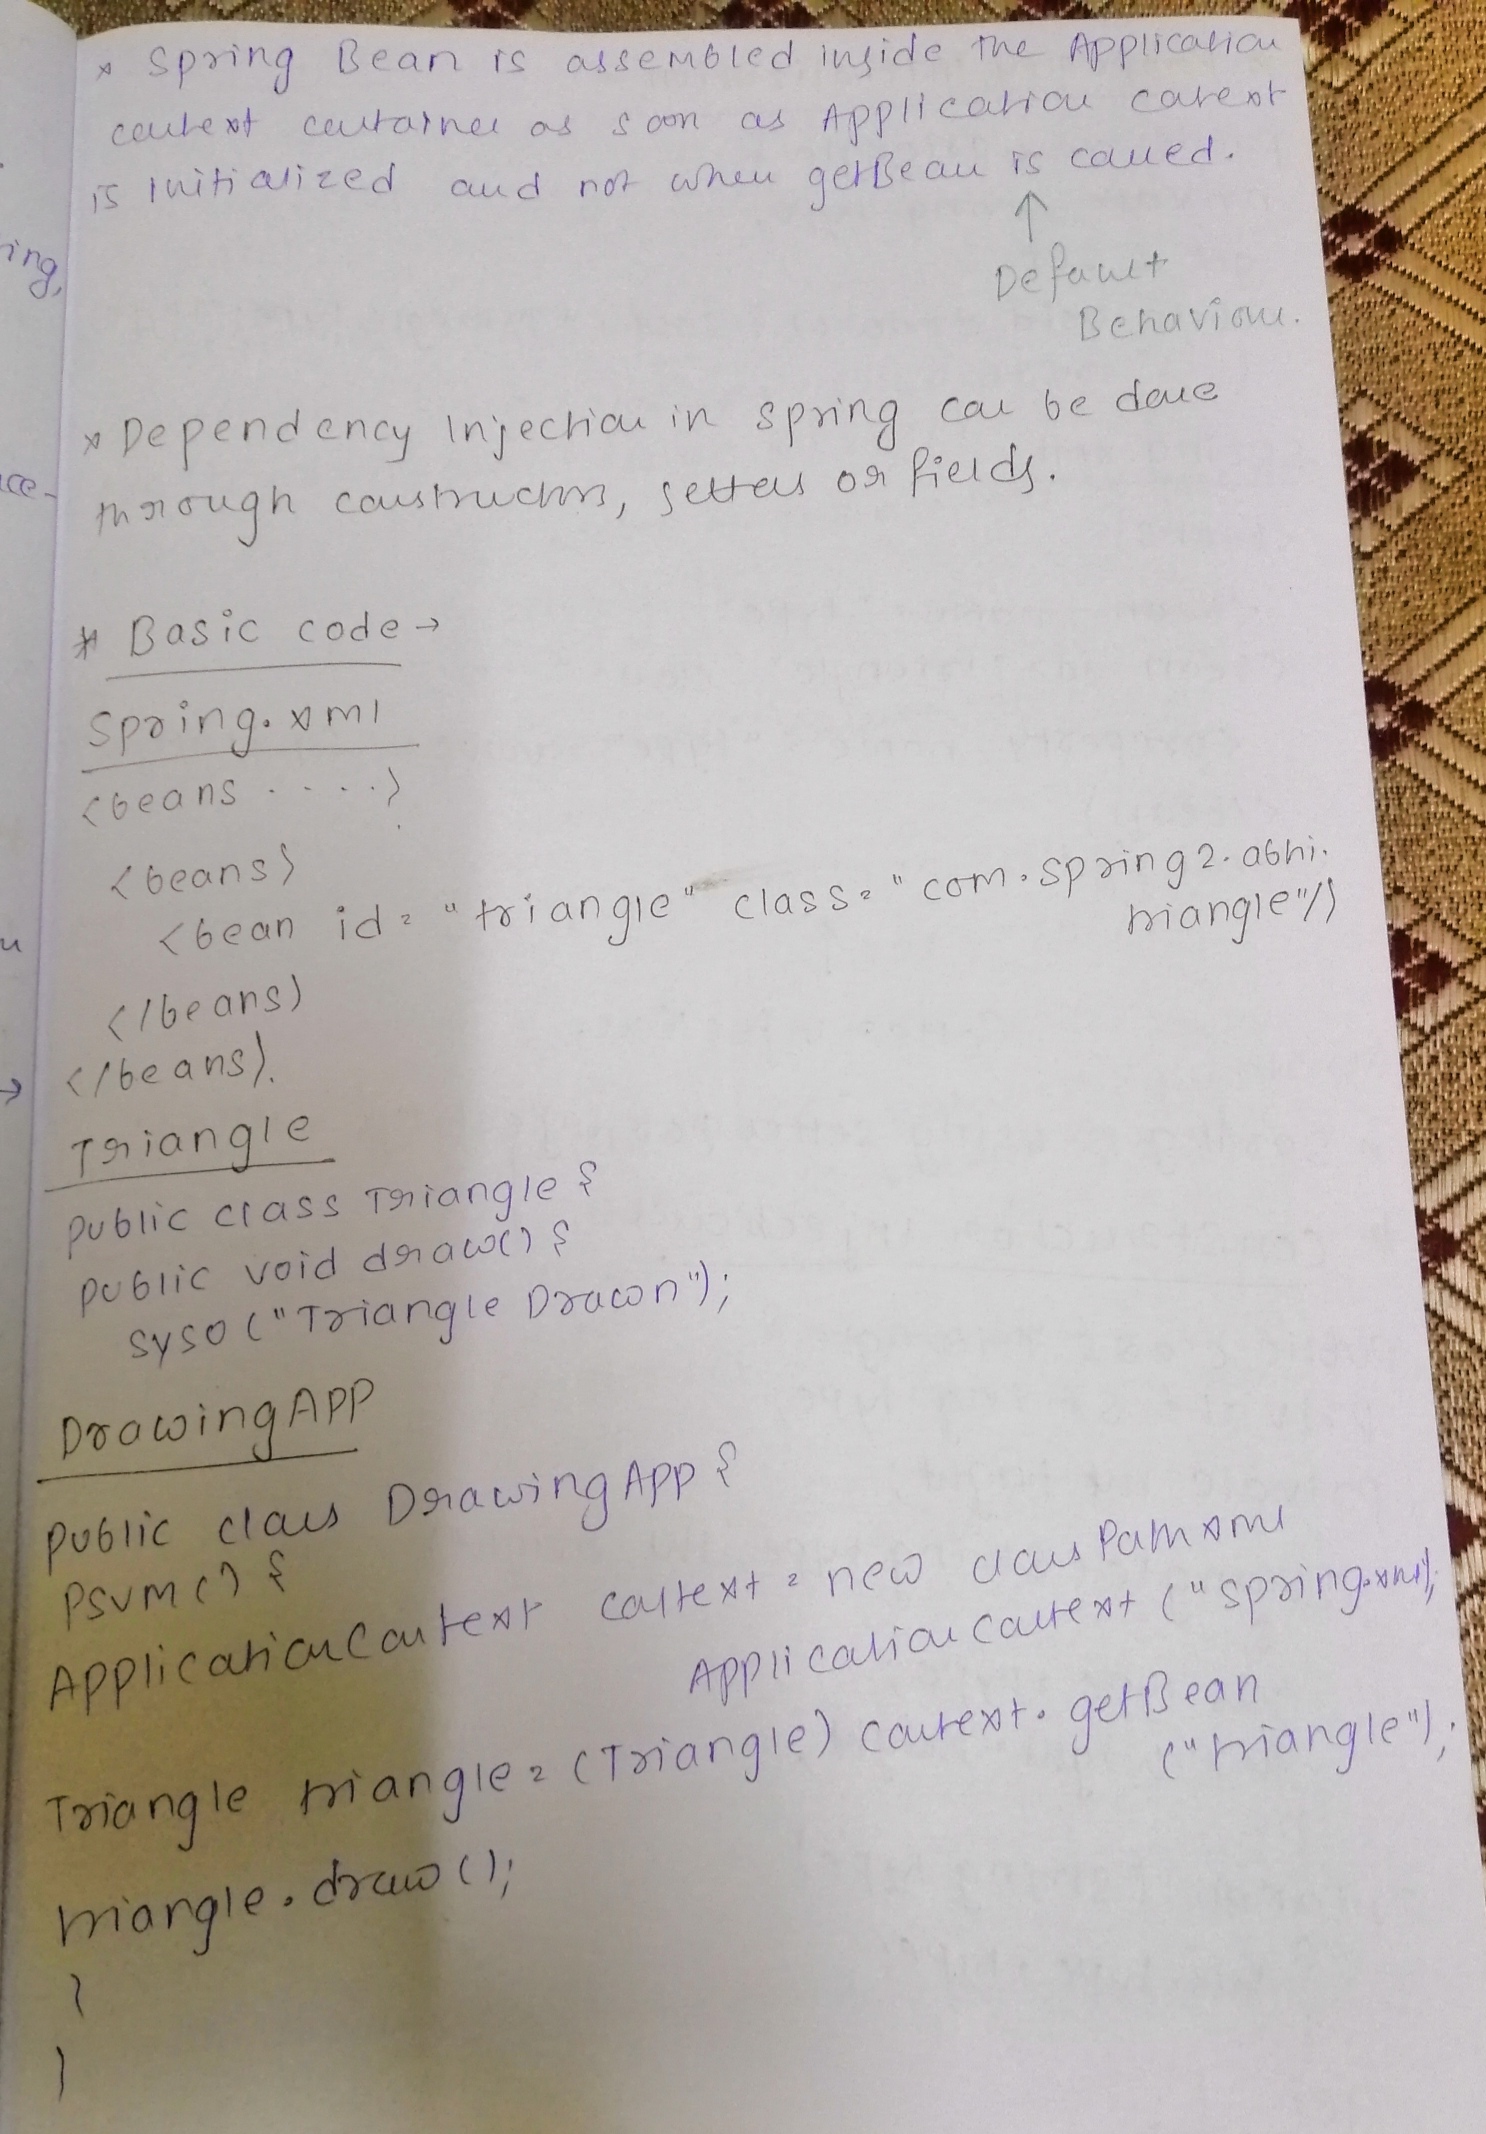 * Spring Bean is assembled inside the Application
context container as soon as Application context
is initialized and not when getBean is called.
↑
Default
Behaviour.
ing,
* Dependency Injection in spring can be done
through constructors, setters or fields.
* Basic code →
Spring.xml
<beans ....>
<beans>
<bean id = "triangle" class = "com.spring2.abhi.
triangle"/>
</beans>
</beans>.
Triangle
public class Triangle {
public void draw() {
syso ("Triangle Drawn");
DrawingApp
public class DrawingApp {
psvm() {
ApplicationContext context = new classPathxml
Application context ("spring.xml");
Triangle triangle = (Triangle) context.getBean
("triangle");
triangle.draw();
}
}